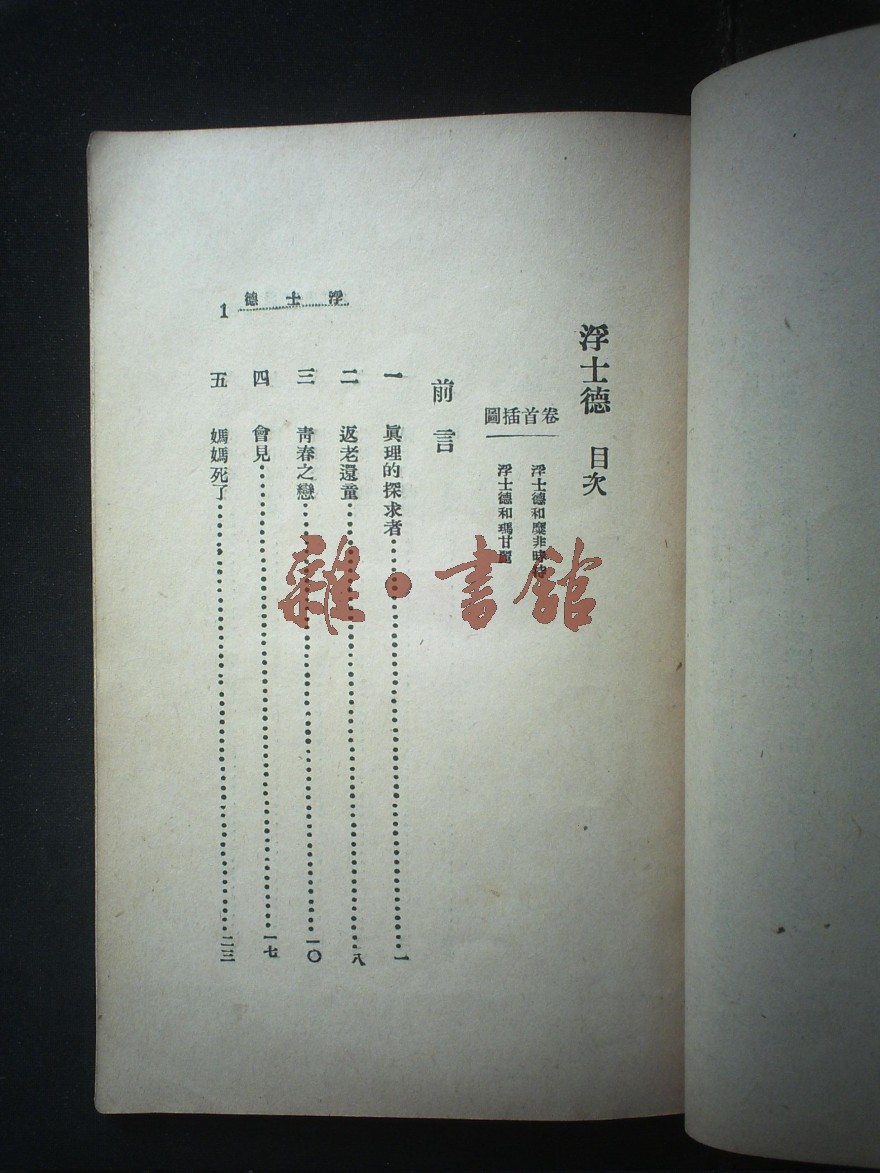 浮士德 目次
卷首插圖
浮士德和糜非時特
浮士德和瑪甘麗
前言
一 眞理的探求者 一
二 返老還童 八
三 靑春之戀 一〇
四 會見 一七
五 媽媽死了 二三
浮士德
1
雜·書館